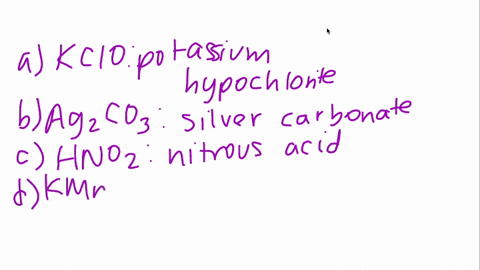 a) KClO: potassium
hypochlorite
b) Ag2CO3: silver carbonate
c) HNO2: nitrous acid
d) KMn